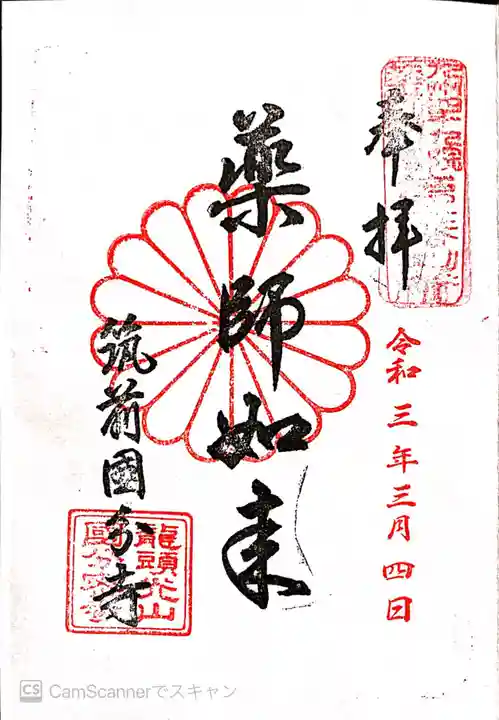 奉拝
令和三年三月四日
薬師如来
筑前國分寺
龍頭光山
CS CamScannerでスキャン